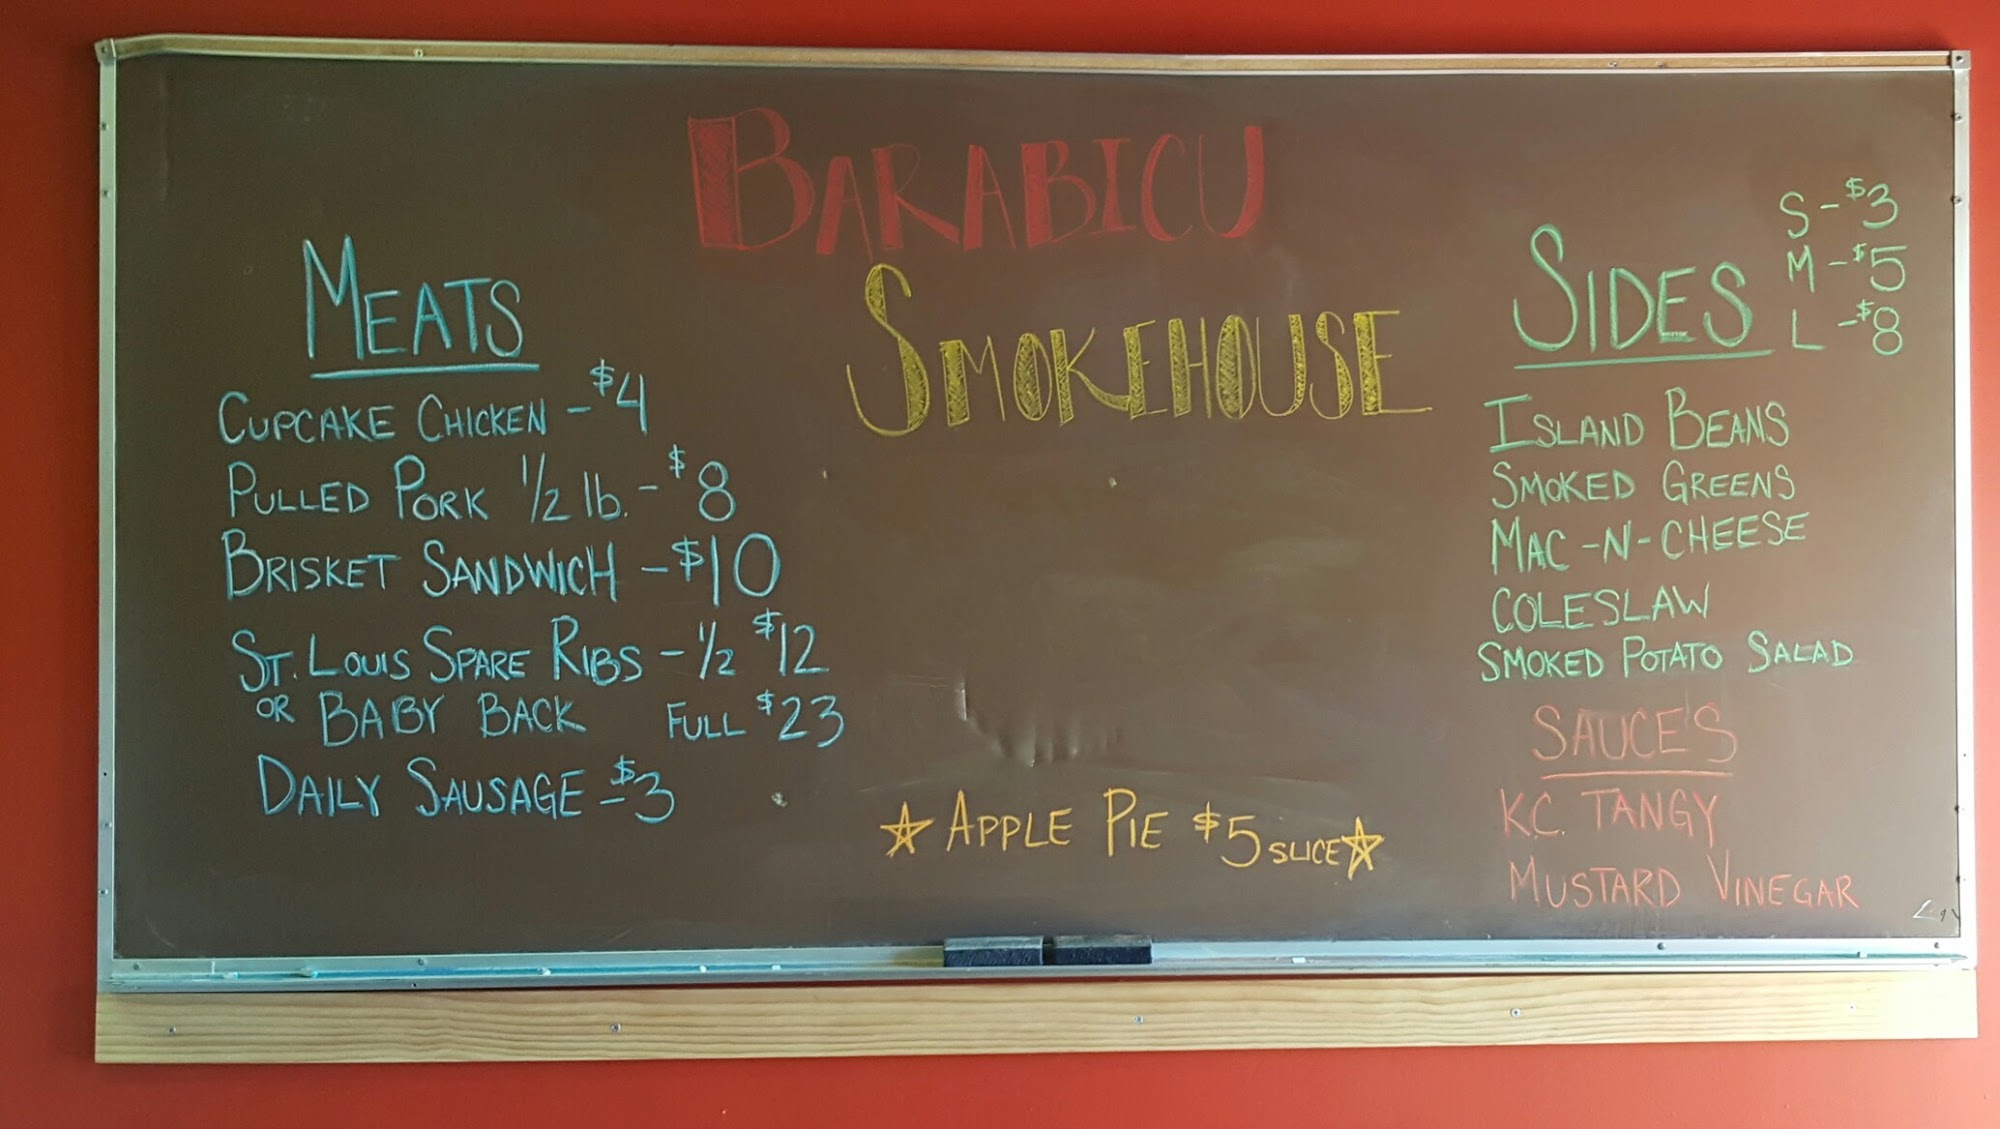 BARABICU
SMOKEHOUSE
MEATS
CUPCAKE CHICKEN - $4
PULLED PORK 1/2 lb. - $8
BRISKET SANDWICH - $10
ST. LOUIS SPARE RIBS - 1/2 $12
OR BABY BACK FULL $23
DAILY SAUSAGE - $3
☆ APPLE PIE $5 SLICE ☆
SIDES
S - $3
M - $5
L - $8
ISLAND BEANS
SMOKED GREENS
MAC-N-CHEESE
COLESLAW
SMOKED POTATO SALAD
SAUCE'S
K.C. TANGY
MUSTARD VINEGAR